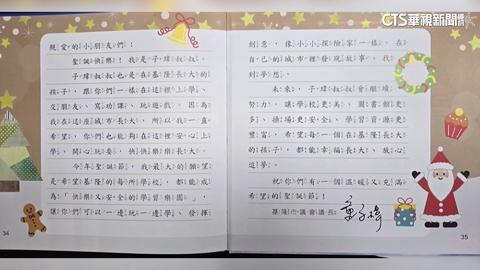 CTS華視新聞
親愛的小朋友們：
聖誕快樂！我是子瑋叔叔
子瑋叔叔也是在基隆長大的
孩子，跟你們一樣在這裡上學、
交朋友、寫功課、玩遊戲。因為
我在這座城市長大，所以我一直
希望，你們也能夠在這裡安心上
學、開心玩耍、快快樂樂長大。
今年聖誕節，我最大的願望
是希望基隆的每所學校，都能成
為「快樂又安全的學習樂園」，
讓你們可以一邊玩一邊學、發揮
34
創意，像小小探險家一樣，在
自己的城市裡發現故事、找
到夢想。
未來，子瑋叔叔會繼續
努力，讓學校更美、圖書館更
多、操場更安全、學習資源更
豐富，希望每一個在基隆長大
的孩子，都能幸福長大、放心
追夢。
祝你們有一個溫暖又充滿
希望的聖誕節！
基隆市議會議長
35